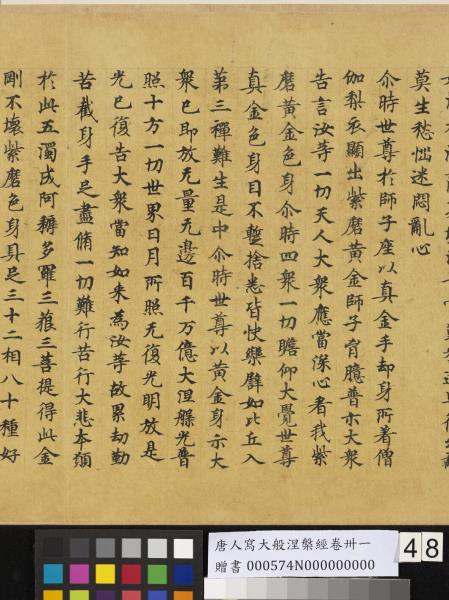 莫生愁惱迷悶亂心
尒時世尊於師子座以真金手却身所著僧
伽梨衣顯出紫磨黄金師子胷臆普示大衆
告言汝等一切天人大衆應當深心看我紫
磨黄金色身尒時四衆一切瞻仰大覺世尊
真金色身目不蹔捨悉皆快樂譬如比丘入
第三禪難生是中尒時世尊以黄金身示大
衆已即放无量无邊百千万億大涅槃光普
照十方一切世界日月所照无復光明放是
光已復告大衆當知如来為汝等故累劫勤
苦截身手足盡脩一切難行苦行大悲本願
於此五濁成阿耨多羅三藐三菩提得此金
剛不壊紫磨色身具足三十二相八十種好
唐人寫大般涅槃經卷卅一
贈書 000574N000000000
48